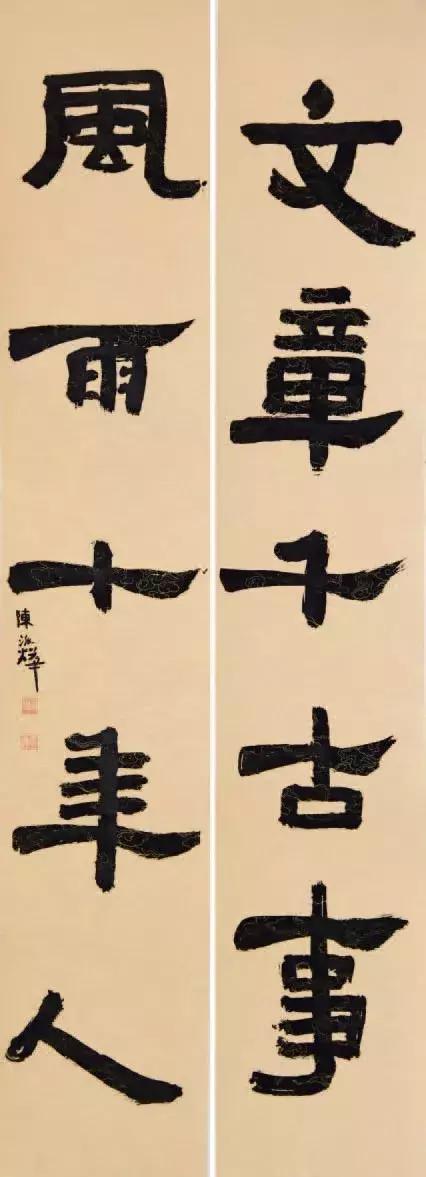 文章千古事
風雨十年人
陳